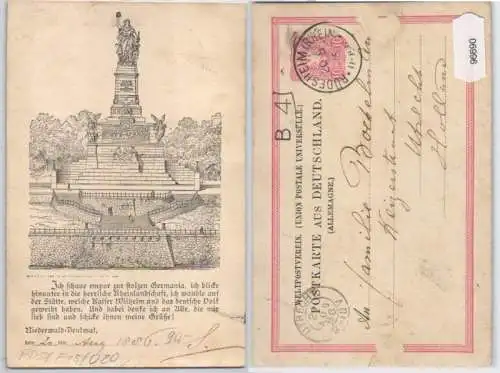 Ich schaue empor zur stolzen Germania, ich blicke
hinunter in die herrliche Rheinlandschaft, ich wandle auf
der Stätte, welche Kaiser Wilhelm und das deutsche Volk
geweiht haben. Und dabei denke ich an Alle, die mir
lieb sind und schicke ihnen meine Grüße!
Niederwald-Denkmal,
den 2 Aug 1886.
96690
B 4
RÜDESHEIM (RHEIN)
WELTPOSTVEREIN. (UNION POSTALE UNIVERSELLE.)
POSTKARTE AUS DEUTSCHLAND.
(ALLEMAGNE.)
An familie
Utrecht
Holland